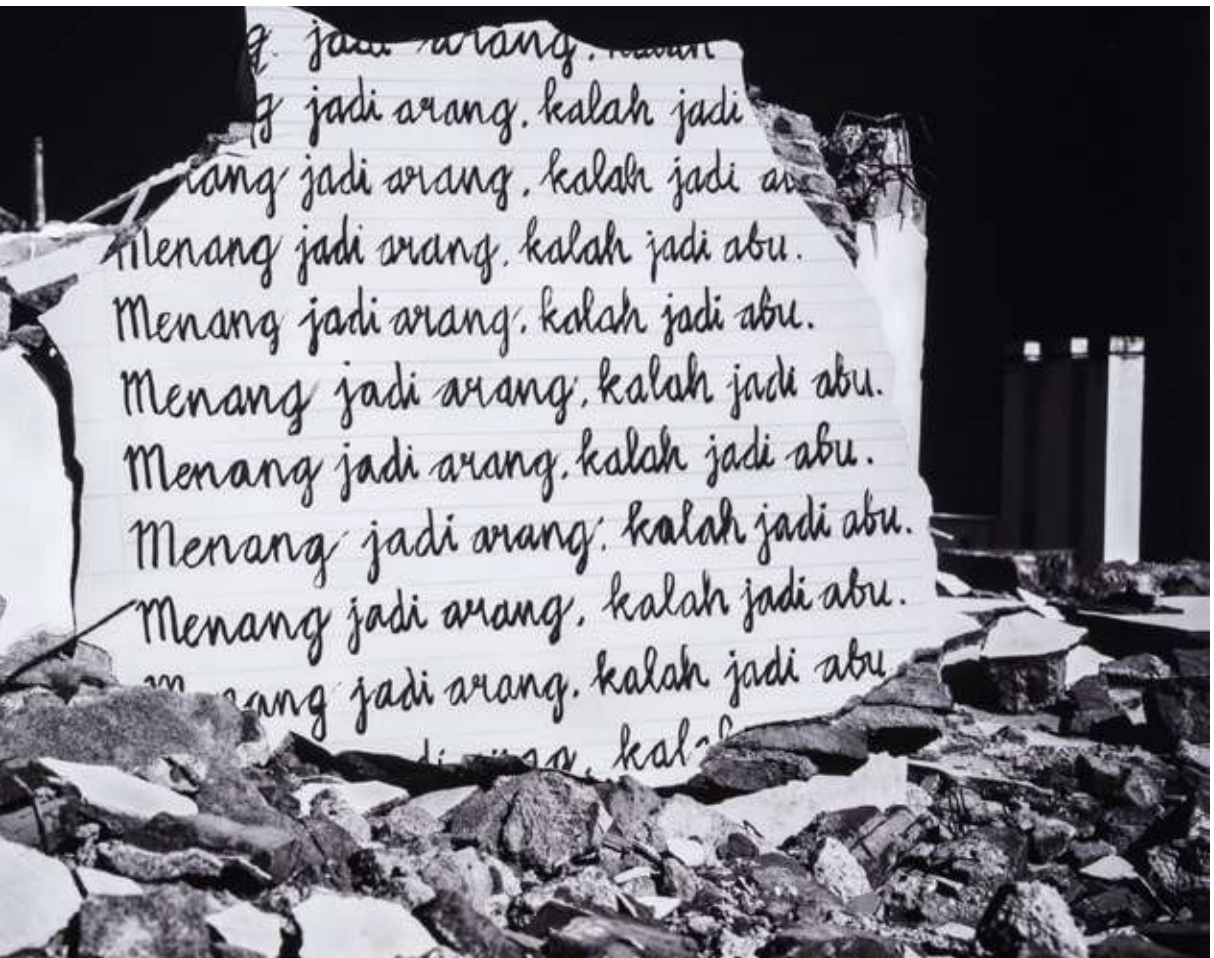 jadi arang.
jadi arang, kalah jadi
jadi arang, kalah jadi
Menang jadi arang, kalah jadi abu.
Menang jadi arang, kalah jadi abu.
Menang jadi arang, kalah jadi abu.
Menang jadi arang, kalah jadi abu.
Menang jadi arang, kalah jadi abu.
Menang jadi arang, kalah jadi abu.
jadi arang, kalah jadi abu